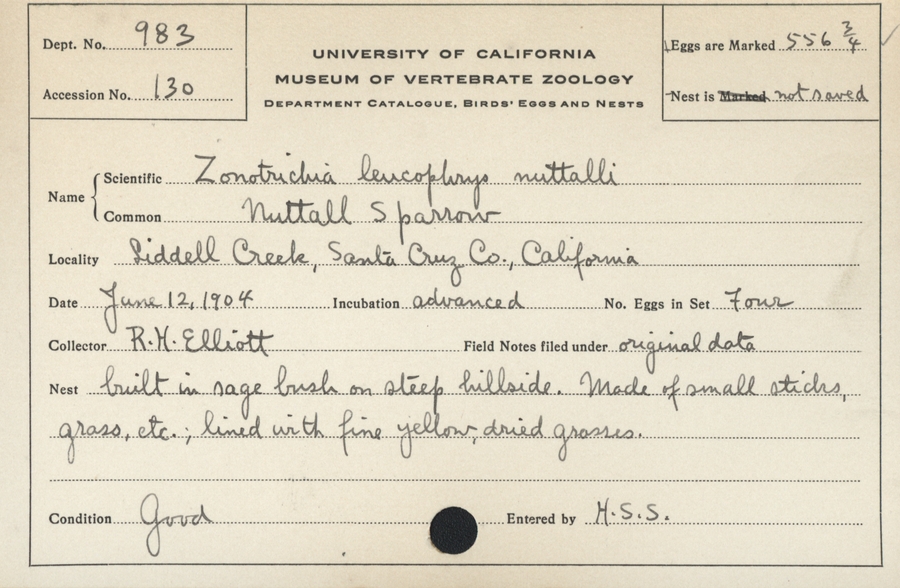 Dept. No. 983
Accession No. 130
UNIVERSITY OF CALIFORNIA
MUSEUM OF VERTEBRATE ZOOLOGY
DEPARTMENT CATALOGUE, BIRDS' EGGS AND NESTS
Eggs are Marked 556 3/4
Nest is Marked not saved
Name
Scientific Zonotrichia leucophrys nuttalli
Common Nuttall Sparrow
Locality Liddell Creek, Santa Cruz Co., California
Date June 12, 1904 Incubation advanced No. Eggs in Set Four
Collector R.H. Elliott Field Notes filed under original data
Nest built in sage bush on steep hillside. Made of small sticks,
grass, etc.; lined with fine yellow, dried grasses.
Condition Good Entered by H.S.S.